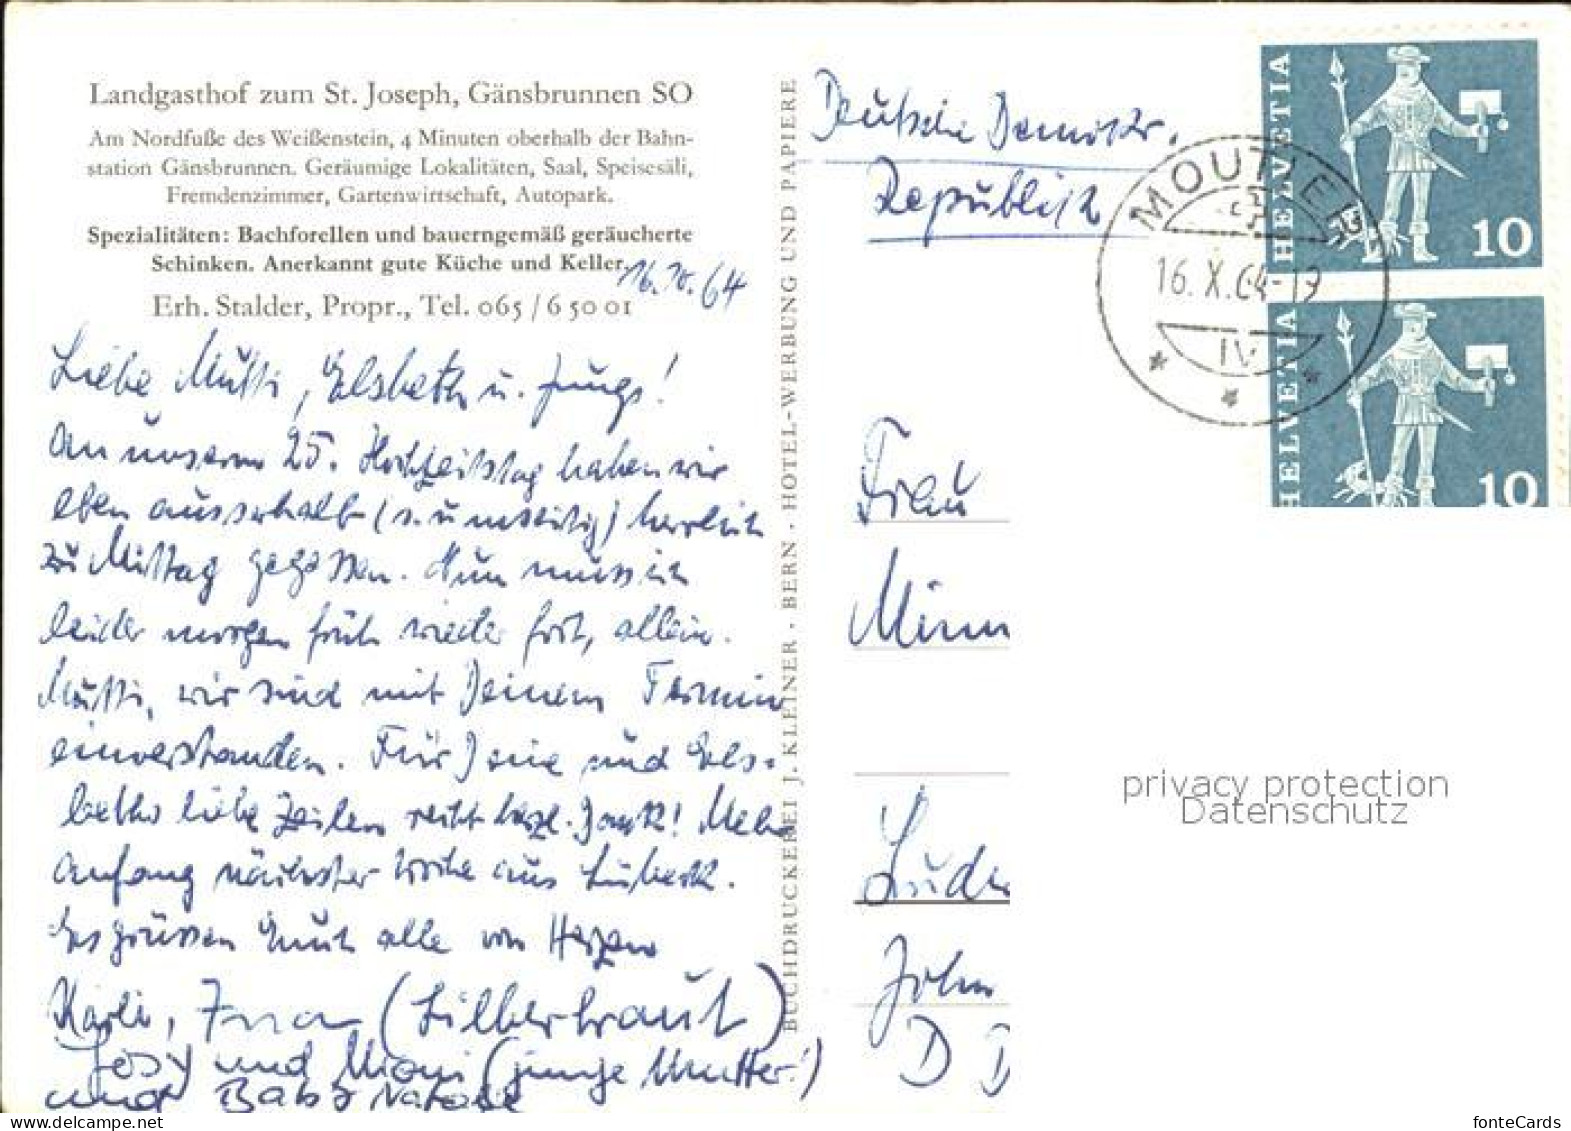 Landgasthof zum St. Joseph, Gänsbrunnen SO
Am Nordfuße des Weißenstein, 4 Minuten oberhalb der Bahn-
station Gänsbrunnen. Geräumige Lokalitäten, Saal, Speisesäli,
Fremdenzimmer, Gartenwirtschaft, Autopark.
Spezialitäten: Bachforellen und bauerngemäß geräucherte
Schinken. Anerkannt gute Küche und Keller.
Erh. Stalder, Propr., Tel. 065 / 6 50 01
16.10.64
Liebe Mutti, Elsbeth u. Jungs!
An unserm 25. Hochzeitstag haben wir
eben ausserhalb (s. umseitig) herrlich
zu Mittag gegessen. Nun muss ich
leider morgen früh wieder fort, allein.
Mutti, wir sind mit Deinem Termin
einverstanden. Für Deine und Els-
beths liebe Zeilen recht herzl. Dank! Mehr
Anfang nächster Woche aus Lübeck.
Es grüssen Euch alle von Herzen
Karli, (Silberbraut)
Josy und Moni (junge Mutter!)
und Baby
BUCHDRUCKEREI J. KLEINER · BERN · HOTEL-WERBUNG UND PAPIERE
Deutsche Demokr.
Republik
Frau
Minn
Lude
John
D D
MOUTIER
16. X. 64-19
IV
HELVETIA
10
HELVETIA
10
privacy protection
Datenschutz
www.delcampe.net
fonteCards